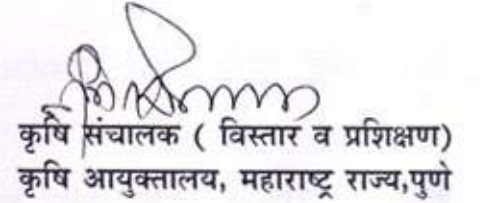 कृषि संचालक ( विस्तार व प्रशिक्षण)
कृषि आयुक्तालय, महाराष्ट्र राज्य,पुणे